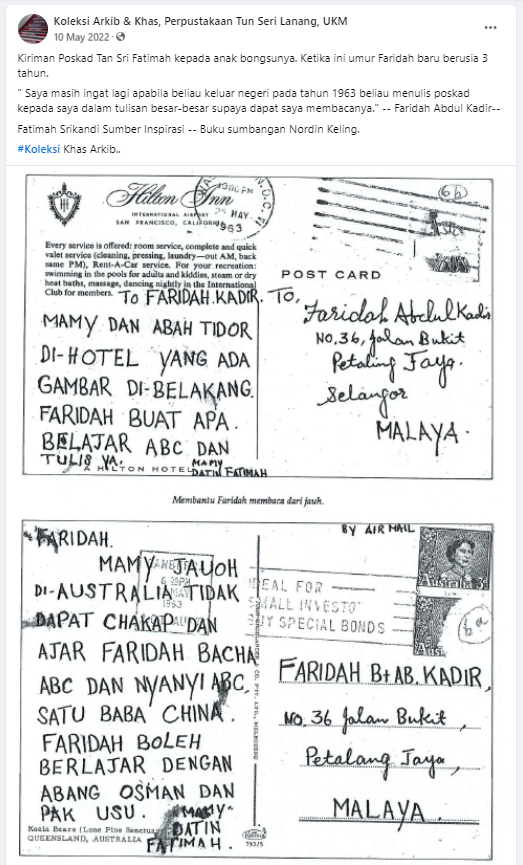 Koleksi Arkib & Khas, Perpustakaan Tun Seri Lanang, UKM
10 May 2022
Kiriman Poskad Tan Sri Fatimah kepada anak bongsunya. Ketika ini umur Faridah baru berusia 3
tahun.
" Saya masih ingat lagi apabila beliau keluar negeri pada tahun 1963 beliau menulis poskad
kepada saya dalam tulisan besar-besar supaya dapat saya membacanya." -- Faridah Abdul Kadir--
Fatimah Srikandi Sumber Inspirasi -- Buku sumbangan Nordin Keling.
#Koleksi Khas Arkib..
Hilton Inn
INTERNATIONAL AIRPORT
SAN FRANCISCO, CALIFORNIA
MAY
1963
6b
Every service is offered: room service, complete and quick
valet service (cleaning, pressing, laundry—out AM, back
same PM), Rent-A-Car service. For your recreation:
swimming in the pools for adults and kiddies, steam or dry
heat baths, massage, dancing nightly in the International
Club for members.
TO FARIDAH.KADIR.
MAMY DAN ABAH TIDOR
DI-HOTEL YANG ADA
GAMBAR DI-BELAKANG.
FARIDAH BUAT APA.
BELAJAR ABC DAN
TULIS YA.
MAMY
DATIN FATIMAH
A HILTON HOTEL
POST CARD
TO,
Faridah Abdul Kadir
No, 36, Jalan Bukit
Petaling Jaya.
Selangor
MALAYA.
Membantu Faridah membaca dari jauh.
FARIDAH.
MAMY JAUOH
DI-AUSTRALIA TIDAK
DAPAT CHAKAP DAN
AJAR FARIDAH BACHA
ABC DAN NYANYI ABC,
SATU BABA CHINA.
FARIDAH BOLEH
BERLAJAR DENGAN
ABANG OSMAN DAN
PAK USU.
MAMY
DATIN
FATIMAH.
Koala Bears (Lone Pine Sanctua
QUEENSLAND, AUSTRALIA
793/5
BY AIR MAIL
Australia
1963
DEAL FOR
SMALL INVESTO
UY SPECIAL BONDS
6a
FARIDAH Bt AB. KADIR,
No. 36 Jalan Bukit,
Petalang Jaya,
MALAYA.